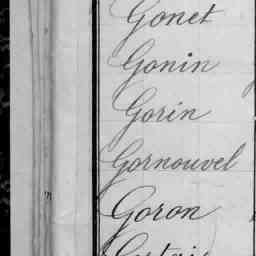 Gonet
Gonin
Gorin
Gornouvel
Goron